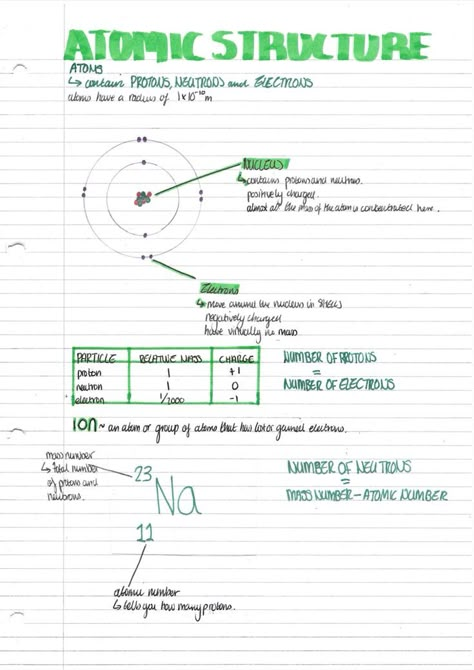 ATOMIC STRUCTURE
ATOMS
↳ contain PROTONS, NEUTRONS and ELECTRONS
atoms have a radius of 1x10⁻¹⁰m
NUCLEUS
↳ contains protons and neutrons.
positively charged.
almost all the mass of the atom is concentrated here.
Electrons
↳ move around the nucleus in SHELLS
negatively charged
have virtually no mass
PARTICLE RELATIVE MASS CHARGE
proton 1 +1
neutron 1 0
electron 1/2000 -1
NUMBER OF PROTONS
=
NUMBER OF ELECTRONS
ION ~ an atom or group of atoms that has lost or gained electrons.
mass number
↳ total number
of protons and
neutrons.
23
Na
11
NUMBER OF NEUTRONS
=
MASS NUMBER - ATOMIC NUMBER
atomic number
↳ tells you how many protons.